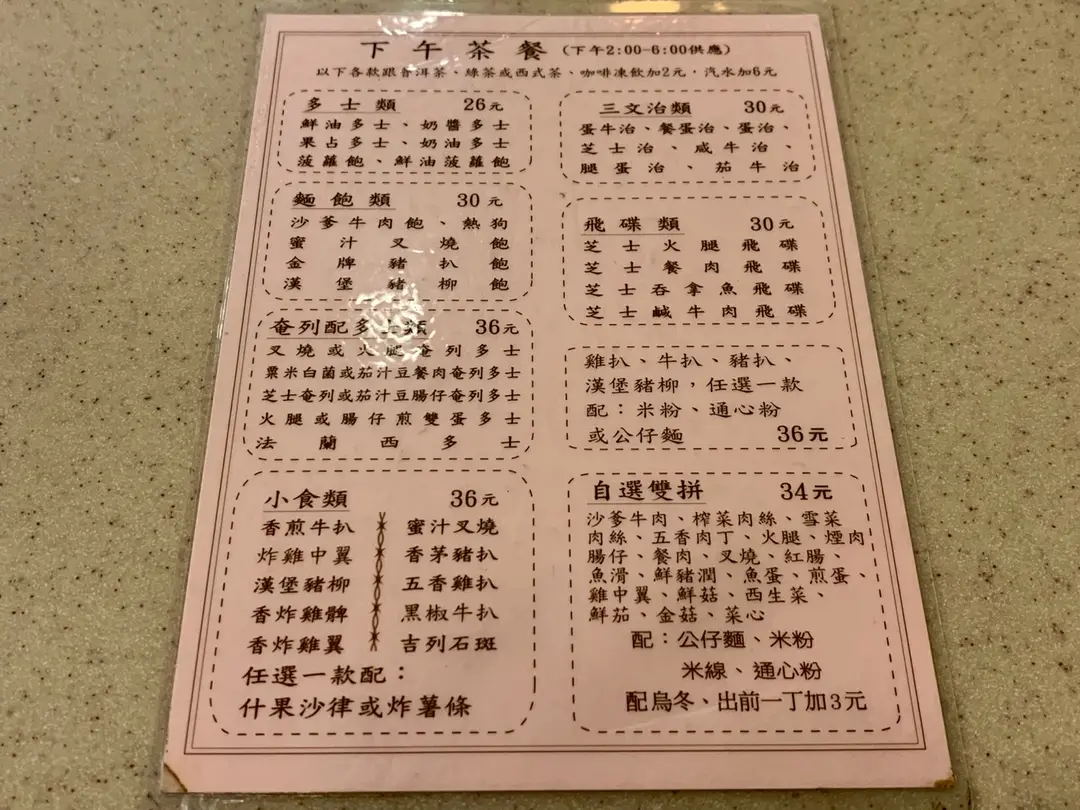 下午茶餐(下午2:00-6:00供應)
以下各款跟普洱茶、綠茶或西式茶、咖啡凍飲加2元，汽水加6元
多士類 26元
鮮油多士、奶醬多士
果占多士、奶油多士
菠蘿飽、鮮油菠蘿飽
麵飽類 30元
沙爹牛肉飽、熱狗
蜜汁叉燒飽
金牌豬扒飽
漢堡豬柳飽
奄列配多士類 36元
叉燒或火腿奄列多士
粟米白菌或茄汁豆餐肉奄列多士
芝士奄列或茄汁豆腸仔奄列多士
火腿或腸仔煎雙蛋多士
法蘭西多士
小食類 36元
香煎牛扒 蜜汁叉燒
炸雞中翼 香茅豬扒
漢堡豬柳 五香雞扒
香炸雞髀 黑椒牛扒
香炸雞翼 吉列石斑
任選一款配：
什果沙律或炸薯條
三文治類 30元
蛋牛治、餐蛋治、蛋治、
芝士治、咸牛治、
腿蛋治、茄牛治
飛碟類 30元
芝士火腿飛碟
芝士餐肉飛碟
芝士吞拿魚飛碟
芝士鹹牛肉飛碟
雞扒、牛扒、豬扒、
漢堡豬柳，任選一款
配：米粉、通心粉
或公仔麵 36元
自選雙拼 34元
沙爹牛肉、榨菜肉絲、雪菜
肉絲、五香肉丁、火腿、煙肉
腸仔、餐肉、叉燒、紅腸、
魚滑、鮮豬潤、魚蛋、煎蛋、
雞中翼、鮮菇、西生菜、
鮮茄、金菇、菜心
配：公仔麵、米粉
米線、通心粉
配烏冬、出前一丁加3元